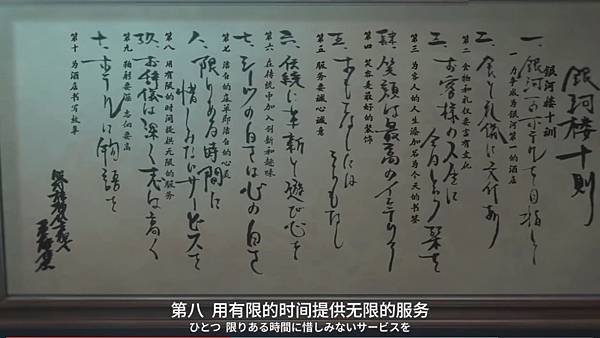 銀河楼十則
银河楼十训
一、銀河一のホテルを目指して
第一 力争成为银河第一的酒店
二、食と礼儀に文化あり
第二 食物和礼仪要富有文化
三、お客様の人生に今日という栞を
第三 为客人的人生添加名为今天的书签
肆、笑顔は最高のインテリア
第四 笑容是最好的装饰
五、おもてなしはうらもなし
第五 服务要诚心诚意
六、伝統に革新と遊び心を
第六 在传统中加入创新和趣味
七、シーツの白さは心の白さ
第七 洁白的床单即洁白的心灵
八、限りある時間に
惜しみないサービスを
第八 用有限的时间提供无限的服务
玖、お辞儀は深く志は高く
第九 鞠躬要深 志向要高
十、ホテルに物語を
第十 为酒店书写故事
第八 用有限的时间提供无限的服务
ひとつ 限りある時間に惜しみないサービスを